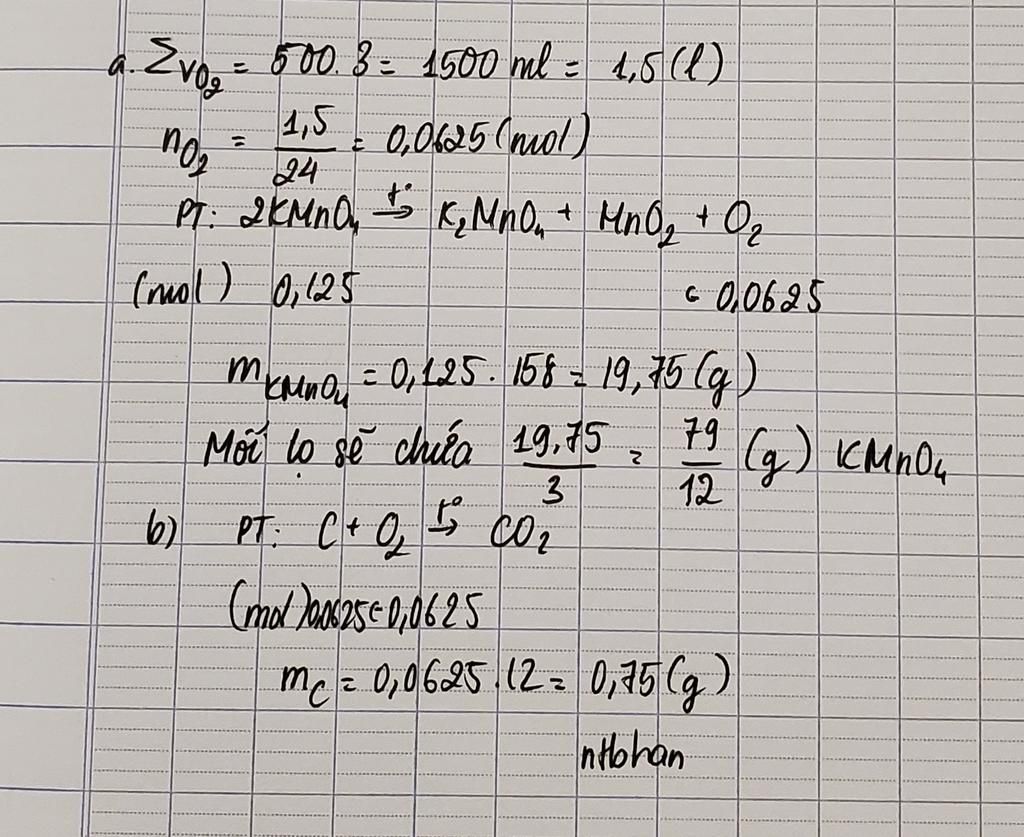 a. ΣVO₂ = 500.3 = 1500 ml = 1,5 (l)
nO₂ = 1,5/24 = 0,0625 (mol)
PT: 2KMnO₄ t°→ K₂MnO₄ + MnO₂ + O₂
(mol) 0,125 ← 0,0625
mKMnO₄ = 0,125 . 158 = 19,75 (g)
Mỗi lọ sẽ chứa 19,75/3 = 79/12 (g) KMnO₄
b) PT: C + O₂ t°→ CO₂
(mol) 0,0625 ← 0,0625
mC = 0,0625 . 12 = 0,75 (g)
ntbhan